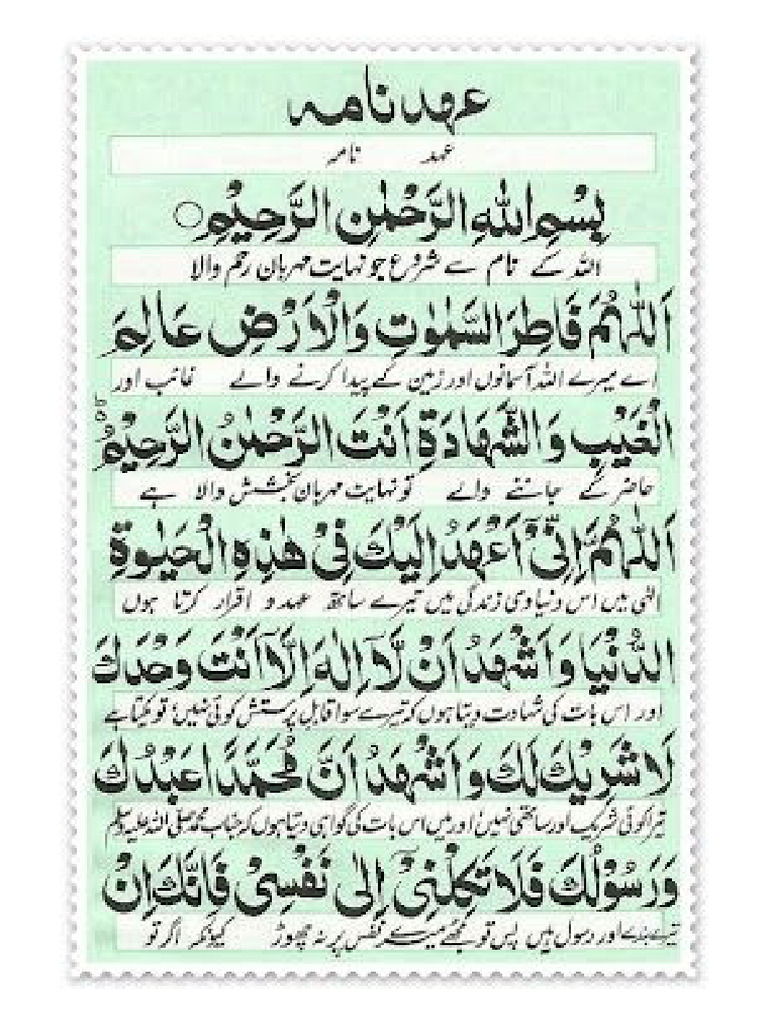 عهدنامہ
عہد نامہ
بِسْمِ اللهِ الرَّحْمٰنِ الرَّحِيْمِ
اللہ کے نام سے شروع جو نہایت مہربان رحم والا
اَللّٰهُمَّ فَاطِرَ السَّمٰوٰتِ وَالْاَرْضِ عَالِمَ
اے میرے اللہ آسمانوں اور زمین کے پیدا کرنے والے غائب اور
الْغَيْبِ وَالشَّهَادَةِ اَنْتَ الرَّحْمٰنُ الرَّحِيْمُ
حاضر کے جاننے والے تو نہایت مہربان بخشش والا ہے
اَللّٰهُمَّ اِنِّىْٓ اَعْهَدُ اِلَيْكَ فِىْ هٰذِهِ الْحَيٰوةِ
الٰہی میں اس دنیاوی زندگی میں تیرے ساتھ عہد و اقرار کرتا ہوں
الدُّنْيَا وَاَشْهَدُ اَنْ لَّآ اِلٰهَ اِلَّآ اَنْتَ وَحْدَكَ
اور اس بات کی شہادت دیتا ہوں کہ تیرے سوا قابل پرستش کوئی نہیں، تو یکتا ہے
لَا شَرِيْكَ لَكَ وَاَشْهَدُ اَنَّ مُحَمَّدًا عَبْدُكَ
تیرا کوئی شریک اور ساتھی نہیں، اور میں اس بات کی گواہی دیتا ہوں کہ جناب محمد صلی اللہ علیہ وسلم
وَرَسُوْلُكَ فَلَا تَكِلْنِىْٓ اِلٰى نَفْسِىْ فَاِنَّكَ اِنْ
تیرے بندے اور رسول ہیں پس تو مجھے میرے نفس پر نہ چھوڑ کیونکہ اگر تو